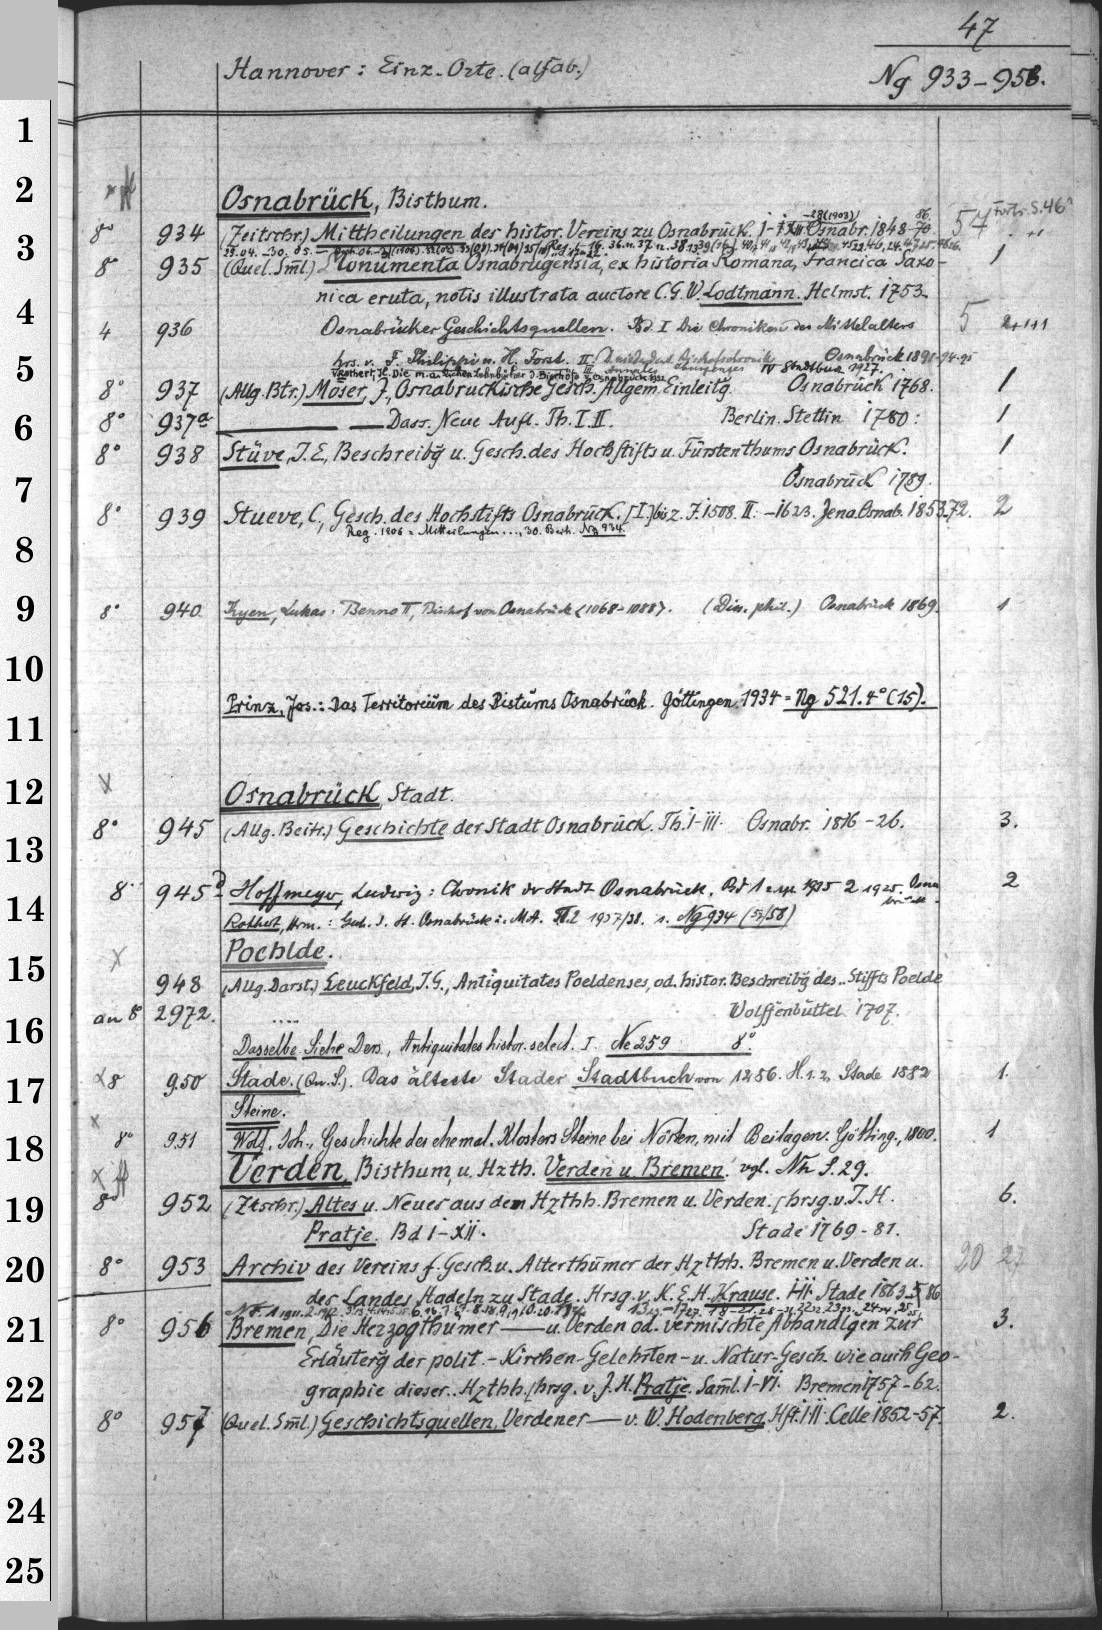 47
Hannover: Einz. Orte. (alfab.)
Ng 933-958.
1
2
Osnabrück, Bisthum.
3
8° 934 (Zeitschr.) Mittheilungen des histor. Vereins zu Osnabrück. I-XIII Osnabr. 1848-70. 57 Forts. S. 46
-28 (1903)
8° 935 (Quel. Sml.) Monumenta Osnabrugensia, ex historia Romana, Francica Saxo- 1
4
nica eruta, notis illustrata auctore C. G. W. Lodtmann. Helmst. 1753.
4 936 Osnabrücker Geschichtsquellen. Bd. I Die Chroniken des Mittelalters 5 2+1+1
5
hrs. v. F. Philippi u. H. Forst. II. Osnabrück 1891-94-95
IV Stadtbuch 1927.
8° 937 (Allg. Btr.) Möser, J., Osnabrückische Gesch. Allgem. Einleitg. Osnabrück 1768. 1
6
8° 937a Dass. Neue Aufl. Th. I. II. Berlin. Stettin 1780: 1
8° 938 Stüve, J. E., Beschreibg u. Gesch. des Hochstifts u. Fürstenthums Osnabrück. 1
7
Osnabrück 1789.
8° 939 Stueve, C., Gesch. des Hochstifts Osnabrück. [I] bis z. J. 1508. II. -1623. Jena. Osnab. 1853.72. 2
Reg. 1906 = Mitteilungen..., 30. Beih. Ng 934.
8
9
8° 940 Thyen, Lukas: Benno II, Bischof von Osnabrück <1068-1088>. (Diss. phil.) Osnabrück 1869. 1
10
Prinz, Jos.: Das Territorium des Bistums Osnabrück. Göttingen 1934 = Ng 521. 4° (15).
11
12
Osnabrück, Stadt.
8° 945 (Allg. Beitr.) Geschichte der Stadt Osnabrück. Th. I-III. Osnabr. 1816-26. 3.
13
8° 945 Hoffmeyer, Ludwig: Chronik der Stadt Osnabrück. Bd 1 2 1925. Osna 2
brück.
14
Rothert, Hrm.: Gesch. d. St. Osnabrück i. M.A. 1937/38. s. Ng 934 (57/58)
Poehlde.
15
948 (Allg. Darst.) Leuckfeld, J. G., Antiquitates Poeldenses, od. histor. Beschreibg des.. Stiffts Poelde
an 8° 2972. .... Wolffenbüttel 1707.
16
Dasselbe. Siehe Dens., Antiquitates histor. select. I. Ne 259 8°.
17
8 950 Stade. (Qu. S.). Das älteste Stader Stadtbuch von 1286. H. 1. 2. Stade 1882 1.
Steine.
18
8° 951 Wolf, Joh., Geschichte des ehemal. Klosters Steine bei Nörten, mit Beilagen. Götting., 1800. 1
Verden, Bisthum, u. Hzth. Verden u. Bremen. vgl. Nh S. 29.
19
8° 952 (Ztschr.) Altes u. Neues aus dem Hzthh. Bremen u. Verden. [hrsg. v. J. H. 6.
Pratje. Bd I-XII. Stade 1769-81.
20
8° 953 Archiv des Vereins f. Gesch. u. Alterthümer der Hzthh. Bremen u. Verden u. 20 27
des Landes Hadeln zu Stade. Hrsg. v. K. E. H. Krause. I-II. Stade 1863 86
21
8° 956 Bremen, Die Herzogthümer — u. Verden od. vermischte Abhandlgen zur 3.
Erläuterg der polit.-Kirchen-Gelehrten-u. Natur-Gesch. wie auch Geo-
22
graphie dieser.. Hzthh. [hrsg. v. J. H. Pratje. Saml. I-VI. Bremen 1757-62.
8° 957 (Quel. Sml.) Geschichtsquellen, Verdener — v. W. Hodenberg. Hft. I-II. Celle 1852-57. 2.
23
24
25